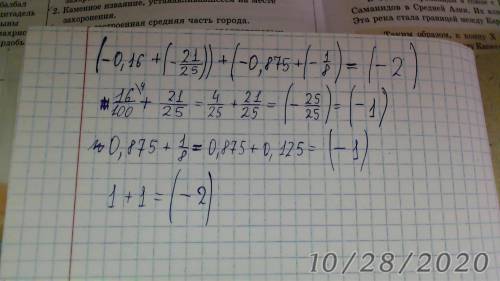 цитадель
2. Каменное изваяние, устанавливавшееся на месте
захоронения.
средняя часть города.
Саманидов в Средней Азии. Их
Эта река стала границей между
Таким образом, к концу X
(-0,16 + (-21/25)) + (-0,875 + (-1/8) = (-2)
16/100 \4 + 21/25 = 4/25 + 21/25 = (-25/25) = (-1)
0,875 + 1/8 = 0,875 + 0,125 = (-1)
1 + 1 = (-2)
10/28/2020